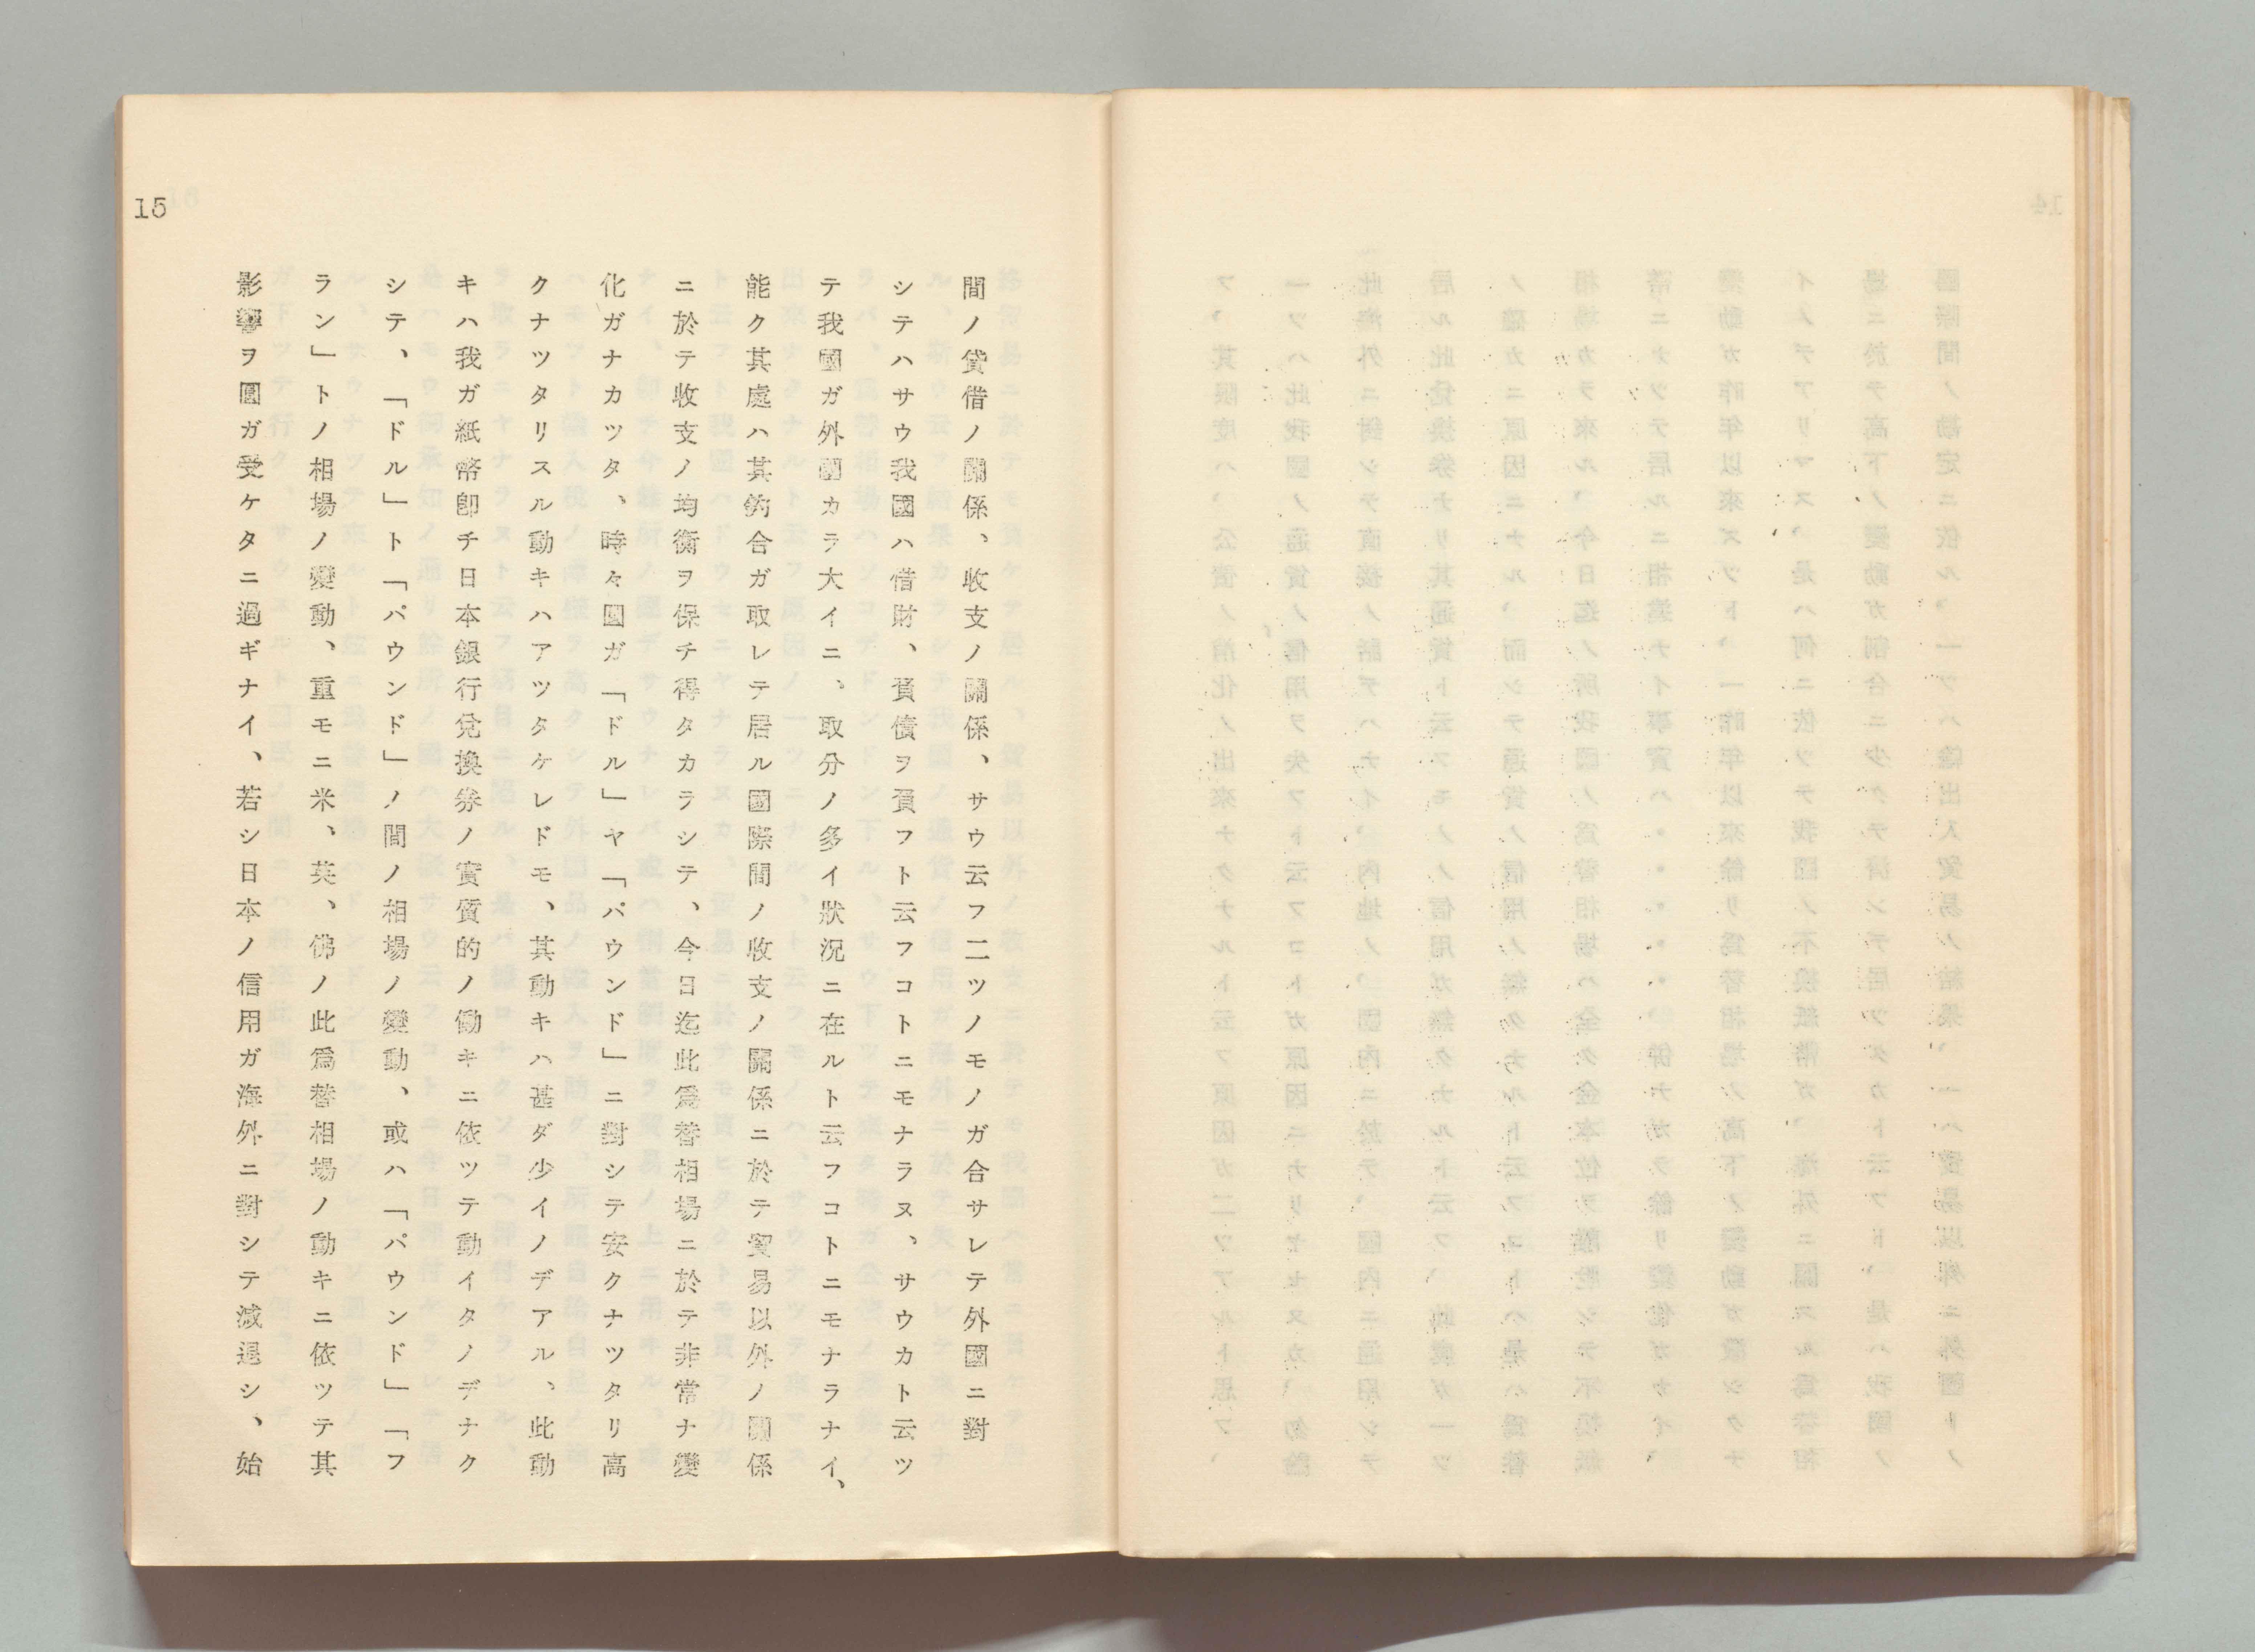 15
間ノ貸借ノ關係、收支ノ關係、サウ云フ二ツノモノガ合サレテ外國ニ對
シテハサウ我國ハ借財、負債ヲ負フト云フコトニモナラヌ、サウカト云ツ
テ我國ガ外國カラ大イニ、取分ノ多イ狀況ニ在ルト云フコトニモナラナイ、
能ク其處ハ其鈎合ガ取レテ居ル國際間ノ收支ノ關係ニ於テ貿易以外ノ關係
ニ於テ收支ノ均衡ヲ保チ得タカラシテ、今日迄此爲替相場ニ於テ非常ナ變
化ガナカツタ、時々圓ガ「ドル」ヤ「パウンド」ニ對シテ安クナツタリ高
クナツタリスル動キハアツタケレドモ、其動キハ甚ダ少イノデアル、此動
キハ我ガ紙幣卽チ日本銀行兌換券ノ實質的ノ働キニ依ツテ動イタノデナク
シテ、「ドル」ト「パウンド」ノ間ノ相場ノ變動、或ハ「パウンド」「フ
ラン」トノ相場ノ變動、重モニ米、英、佛ノ此爲替相場ノ動キニ依ツテ其
影響ヲ圓ガ受ケタニ過ギナイ、若シ日本ノ信用ガ海外ニ對シテ減退シ、始